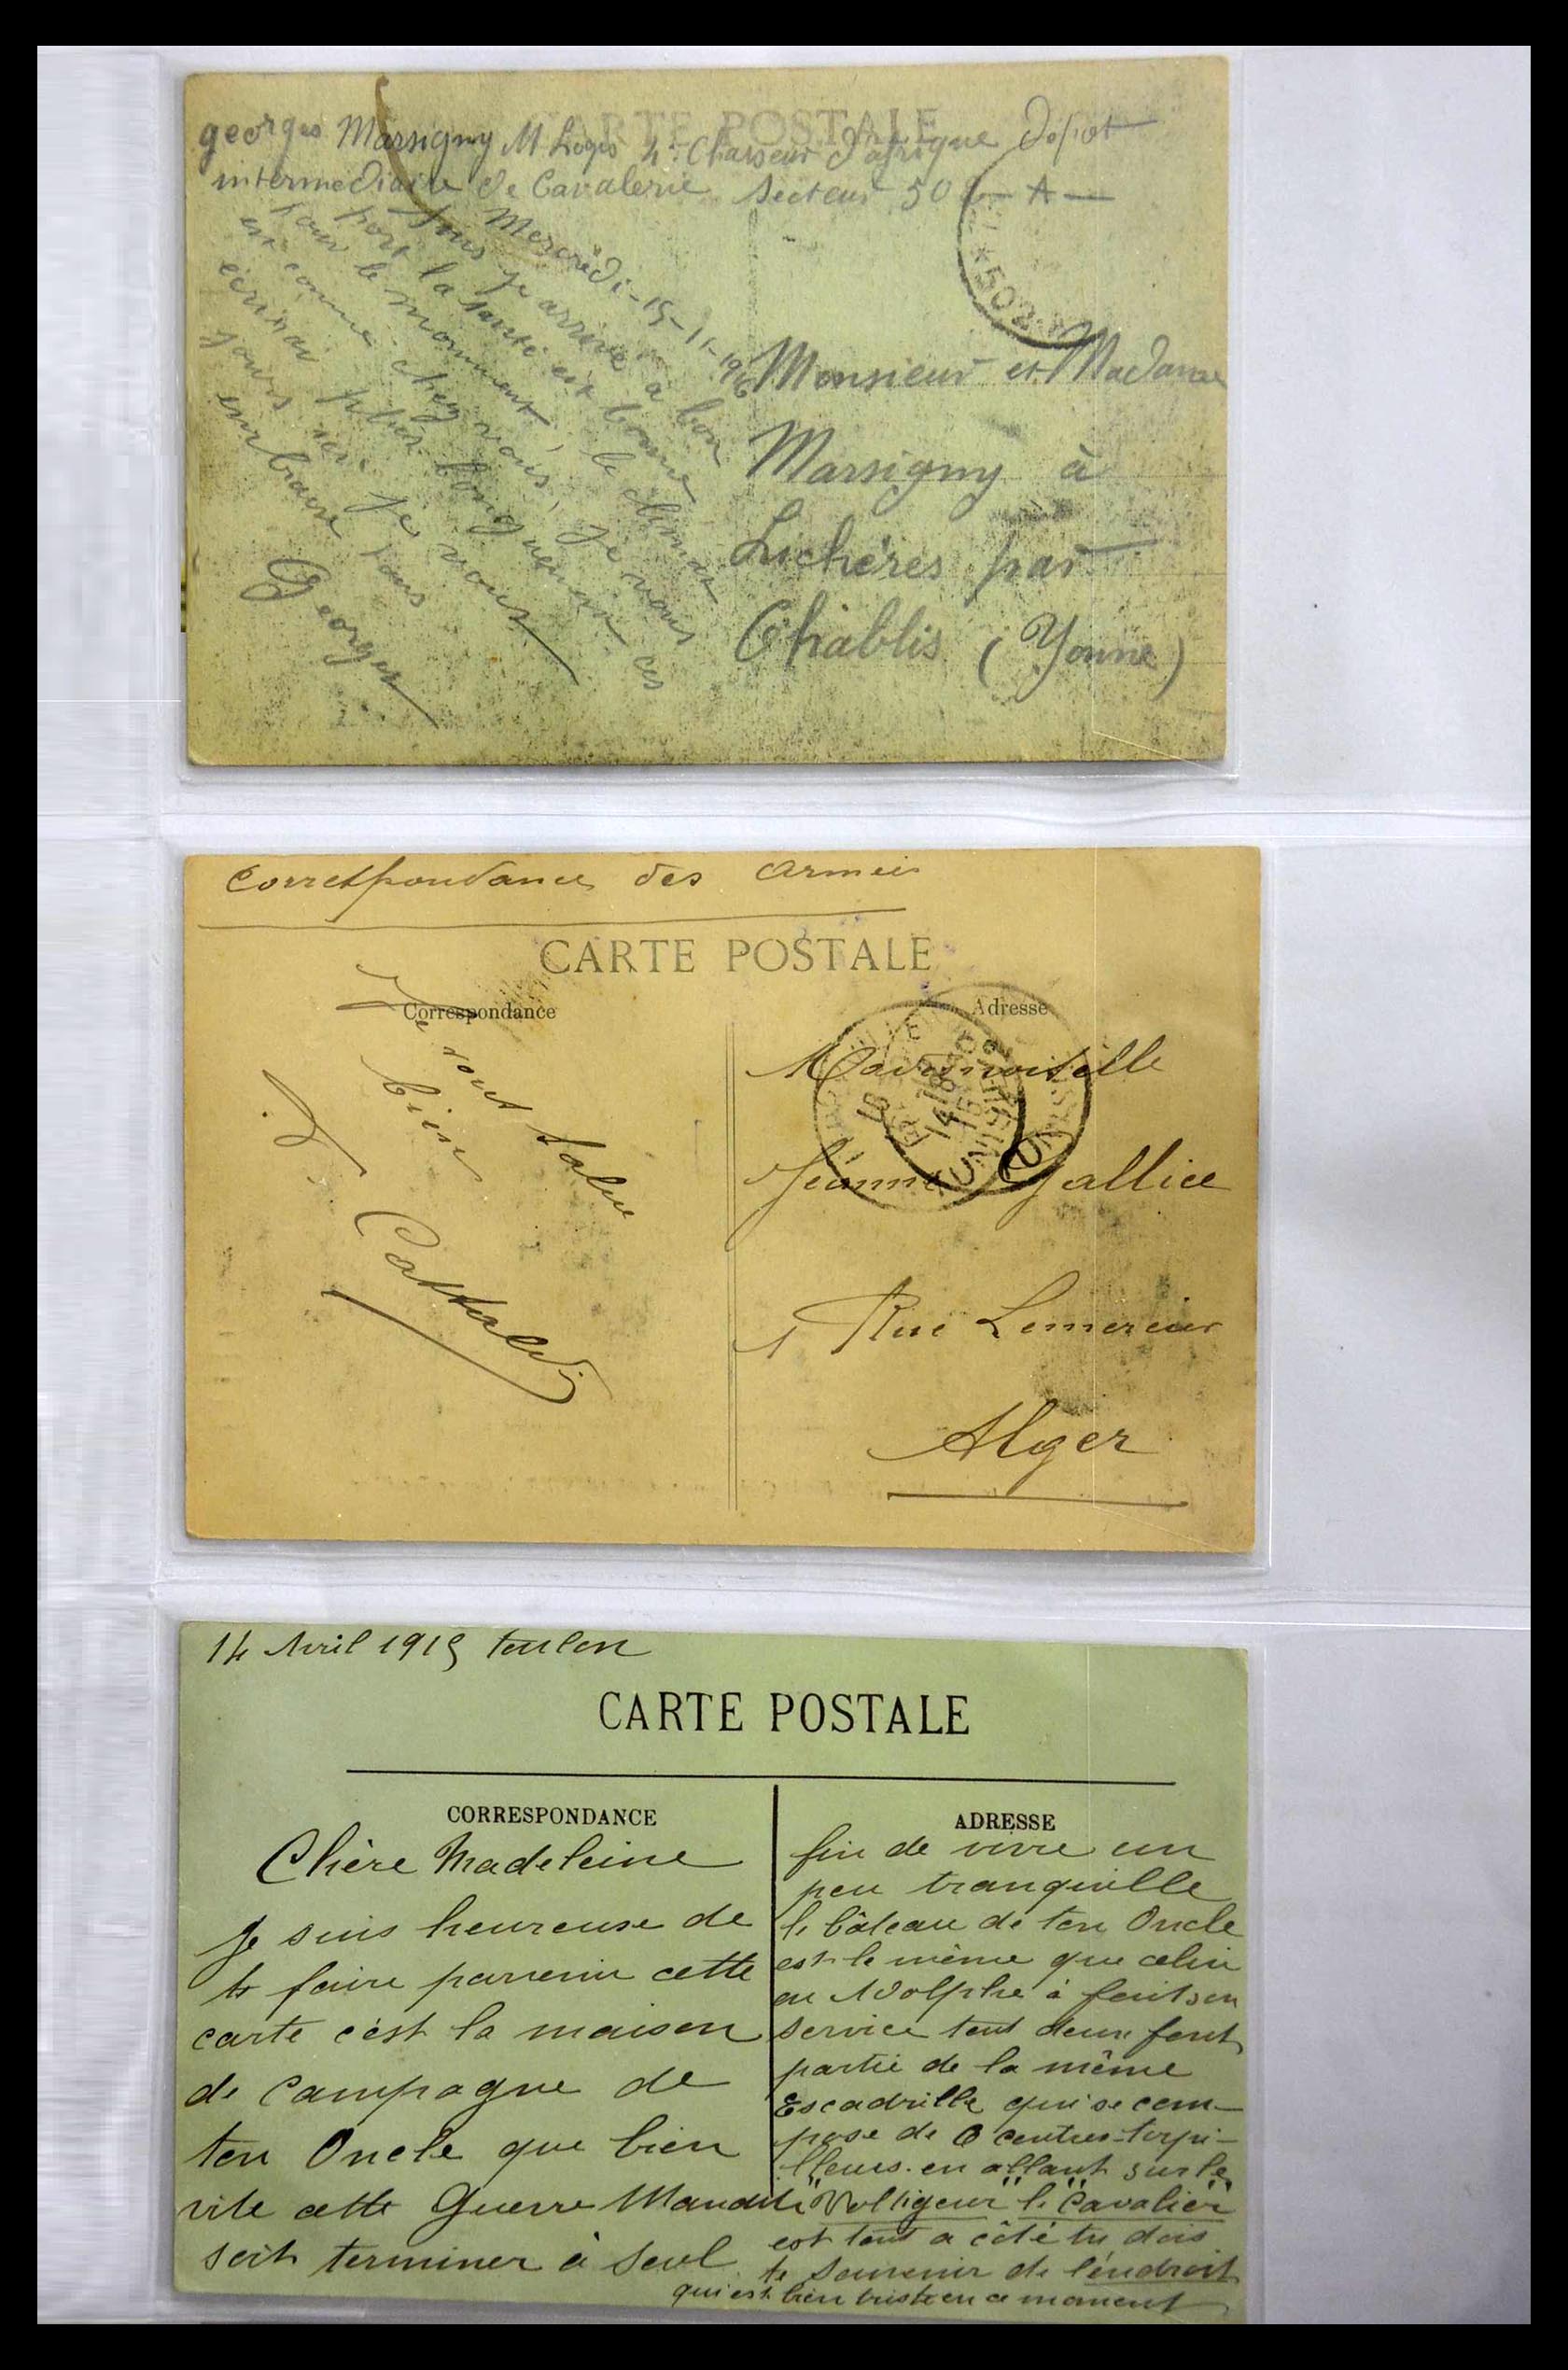 CARTE POSTALE
georges Marsigny M Logis 4e Chasseur d'afrique Dépot
intermediaire de Cavalerie Secteur 502 - A -
*502*
Mercredi - 15-11-1916
tous je arrivé a bon
port la santé est bonne
pour le momment, le climat
est comme chez vous, je vous
écrirai plus longuement ces
jours ici je vous
embrasse tous
Georges
Monsieur et Madame
Marsigny à
Lichères par
Chablis (Yonne)
Correspondance des Armées
CARTE POSTALE
Correspondance
Adresse
Je vous salue
bien
Cattaldi
Mademoiselle
Jeanne Gallice
1 Rue Lemercier
Alger
14 Avril 1915 toulon
CARTE POSTALE
CORRESPONDANCE
ADRESSE
Chère Madeleine
Je suis heureuse de
te faire parvenir cette
carte c'est la maison
de Campagne de
ton Oncle que bien
vite cette Guerre Maudite
soit terminer à seul
fin de vivre un
peu tranquille
le bâteau de ton Oncle
est le même que celui
ou Adolphe à fait son
service tout deux font
partie de la même
Escadrille qui se com-
pose de 6 contres-torpi-
lleurs. en allant sur le
"Voltigeur" le "Cavalier"
est tout a côté tu dois
te souvenir de l'éndroit
qui est bien triste en ce moment